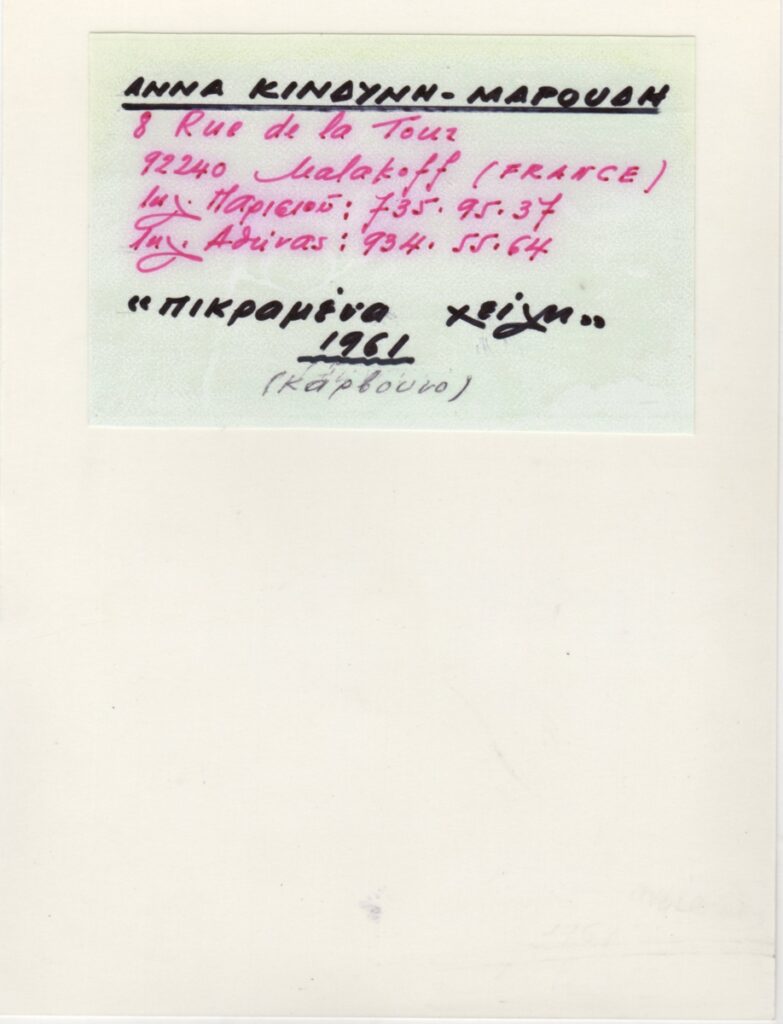 ΑΝΝΑ ΚΙΝΔΥΝΗ - ΜΑΡΟΥΔΗ
8 Rue de la Tour
92240 Malakoff (FRANCE)
Τηλ. Παρισιού: 735.95.37
Τηλ. Αθήνας: 934.55.64
"πικραμένα χείλη"
1961
(κάρβουνο)